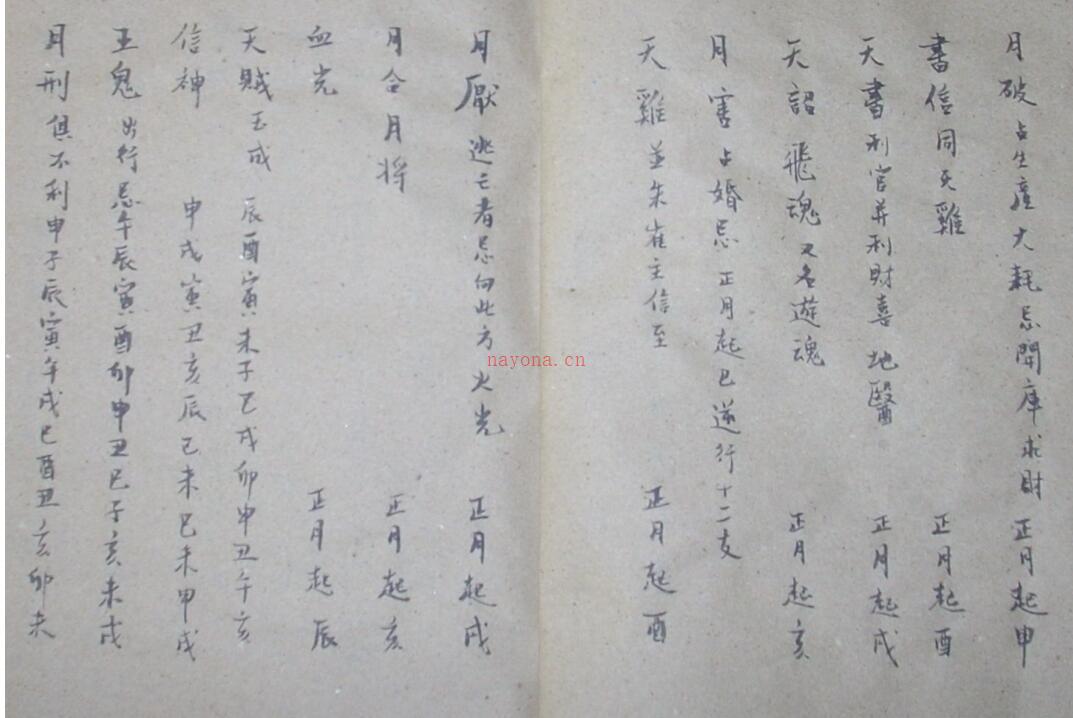 月破占生產大耗忌開庫求財 正月起申
書信同天雞 正月起酉
天書利官并利財喜 地醫 正月起戌
天詔 飛魂 又名遊魂 正月起亥
月害占婚忌 正月起巳逆行十二支
天雞並朱雀主信至 正月起酉
月厭逃亡者忌向此方火光 正月起戌
月合月將 正月起亥
血光 正月起辰
天賊 辰酉寅未子巳戌卯申丑午亥
信神 申戌寅丑亥辰巳未巳未申戌
王鬼出行忌午辰寅酉卯申丑巳子亥未戌
月刑俱不利申子辰寅午戌巳酉丑亥卯未
nayona.cn